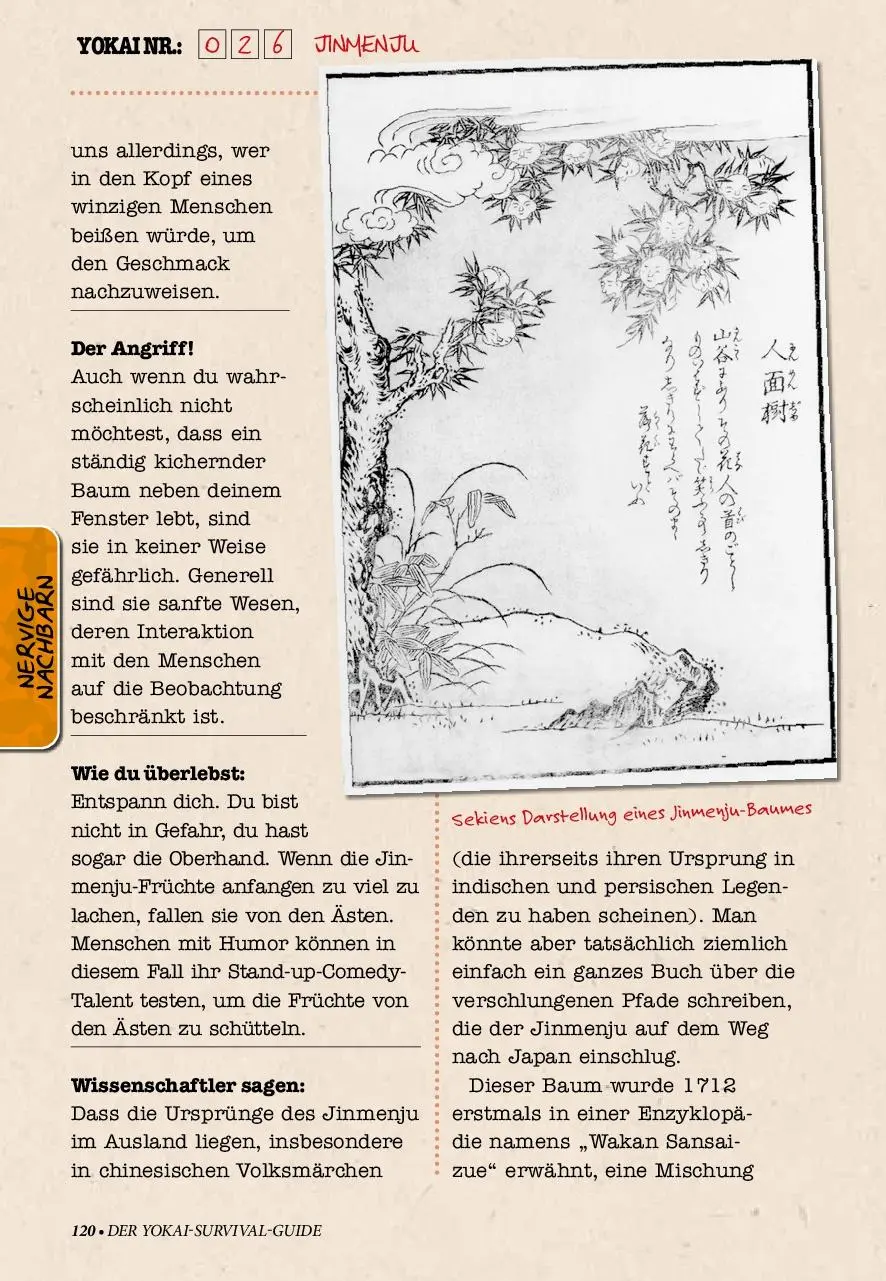 YOKAI NR.: 026 JINMENJU
uns allerdings, wer
in den Kopf eines
winzigen Menschen
beißen würde, um
den Geschmack
nachzuweisen.
Der Angriff!
Auch wenn du wahr-
scheinlich nicht
möchtest, dass ein
ständig kichernder
Baum neben deinem
Fenster lebt, sind
sie in keiner Weise
gefährlich. Generell
sind sie sanfte Wesen,
deren Interaktion
mit den Menschen
auf die Beobachtung
beschränkt ist.
Wie du überlebst:
Entspann dich. Du bist
nicht in Gefahr, du hast
sogar die Oberhand. Wenn die Jin-
menju-Früchte anfangen zu viel zu
lachen, fallen sie von den Ästen.
Menschen mit Humor können in
diesem Fall ihr Stand-up-Comedy-
Talent testen, um die Früchte von
den Ästen zu schütteln.
Wissenschaftler sagen:
Dass die Ursprünge des Jinmenju
im Ausland liegen, insbesondere
in chinesischen Volksmärchen
人面樹
山谷にありその花人の首のごとし
ものいハずしてたゞ笑ふ事しきり
なりしきりにわらへバそのまゝ
落花すといふ
Sekiens Darstellung eines Jinmenju-Baumes
(die ihrerseits ihren Ursprung in
indischen und persischen Legen-
den zu haben scheinen). Man
könnte aber tatsächlich ziemlich
einfach ein ganzes Buch über die
verschlungenen Pfade schreiben,
die der Jinmenju auf dem Weg
nach Japan einschlug.
Dieser Baum wurde 1712
erstmals in einer Enzyklopä-
die namens „Wakan Sansai-
zue“ erwähnt, eine Mischung
NERVIGE
NACHBARN
120 • DER YOKAI-SURVIVAL-GUIDE